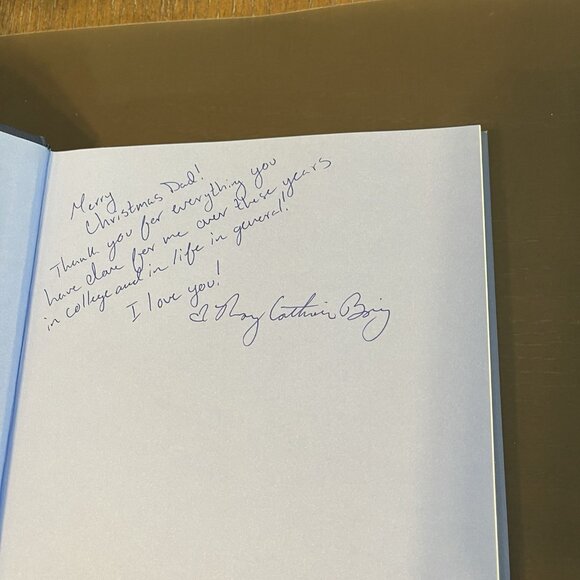 Merry
Christmas Dad!
Thank you for everything you
have done for me over these years
in college and in life in general!
I love you!
♡